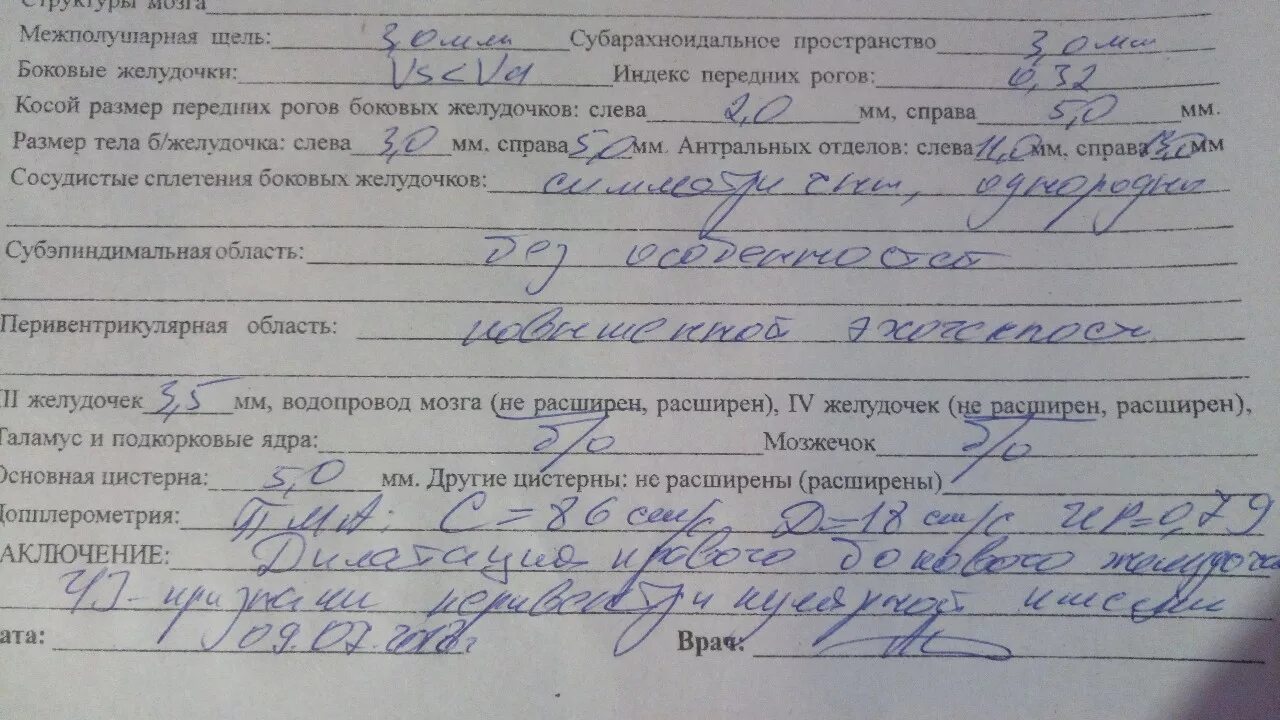 Структуры мозга
Межполушарная щель: 3,0 мм Субарахноидальное пространство 3,0 мм
Боковые желудочки: Vs<Vd Индекс передних рогов: 0,32
Косой размер передних рогов боковых желудочков: слева 2,0 мм, справа 5,0 мм.
Размер тела б/желудочка: слева 3,0 мм, справа 5,0 мм. Антральных отделов: слева 11,0 мм, справа мм
Сосудистые сплетения боковых желудочков: симметричны, однородны
Субэпиндимальная область: без особенностей
Перивентрикулярная область: повышенной эхогенности
III желудочек 3,5 мм, водопровод мозга (не расширен, расширен), IV желудочек (не расширен, расширен),
Таламус и подкорковые ядра: б/о Мозжечок б/о
Основная цистерна: 5,0 мм. Другие цистерны: не расширены (расширены)
Допплерометрия: ПМА: С=86 см/с, Д=18 см/с ИР=0,79
ЗАКЛЮЧЕНИЕ: Дилатация правого бокового желудочка
УЗ-признаки перивентрикулярной ишемии
Дата: 09.07. Врач: